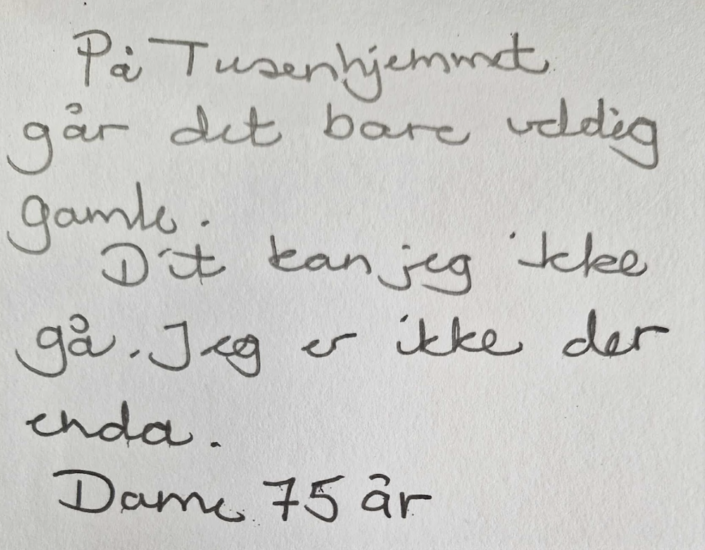 På Tusenhjemmet
går det bare veldig
gamle.
Dit kan jeg ikke
gå. Jeg er ikke der
enda.
Dame 75 år